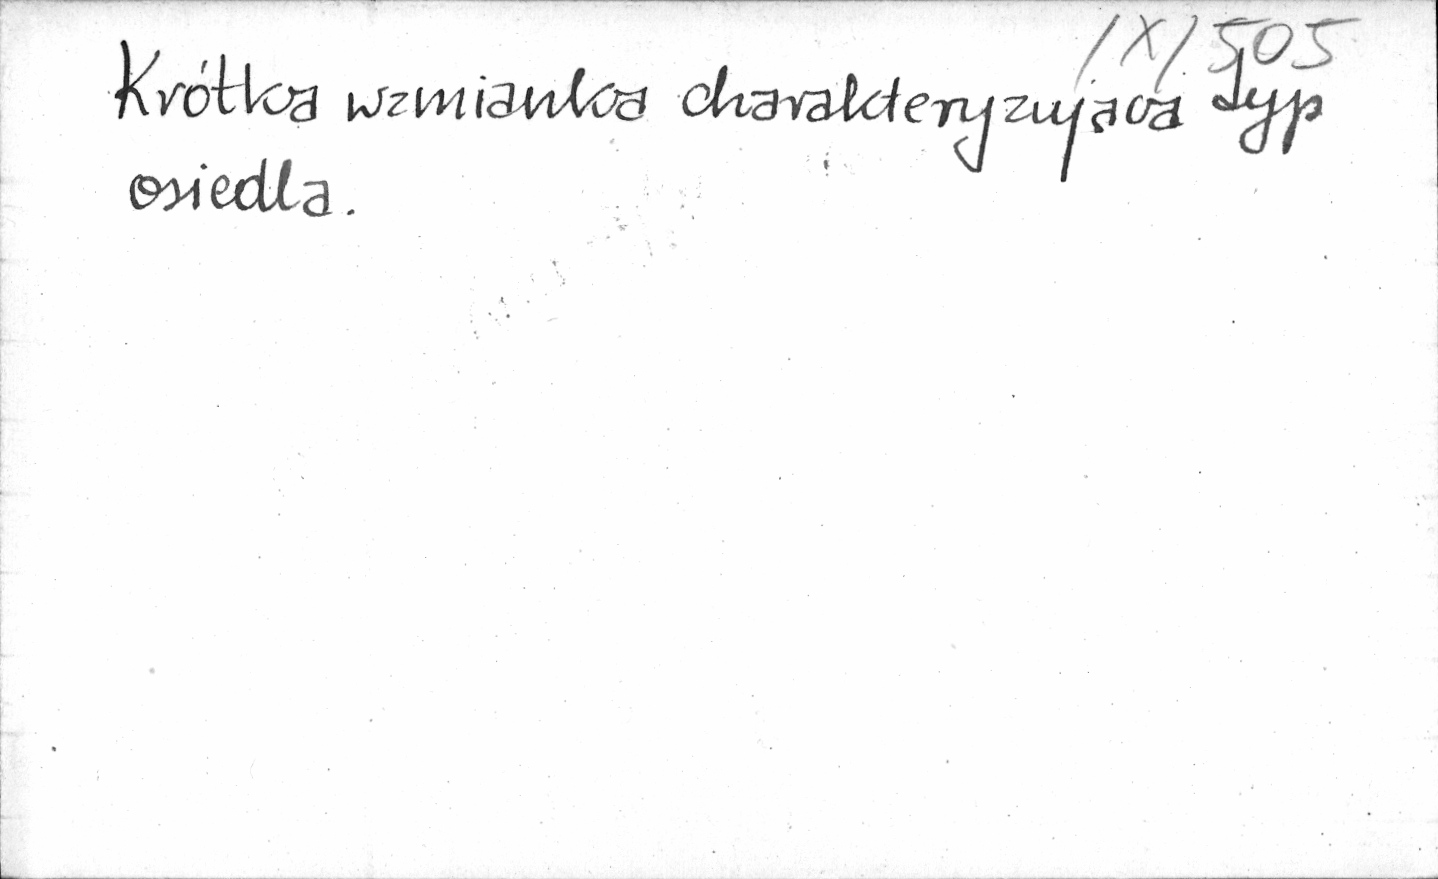 /X/505
Krótka wzmianka charakteryzująca typ
osiedla.